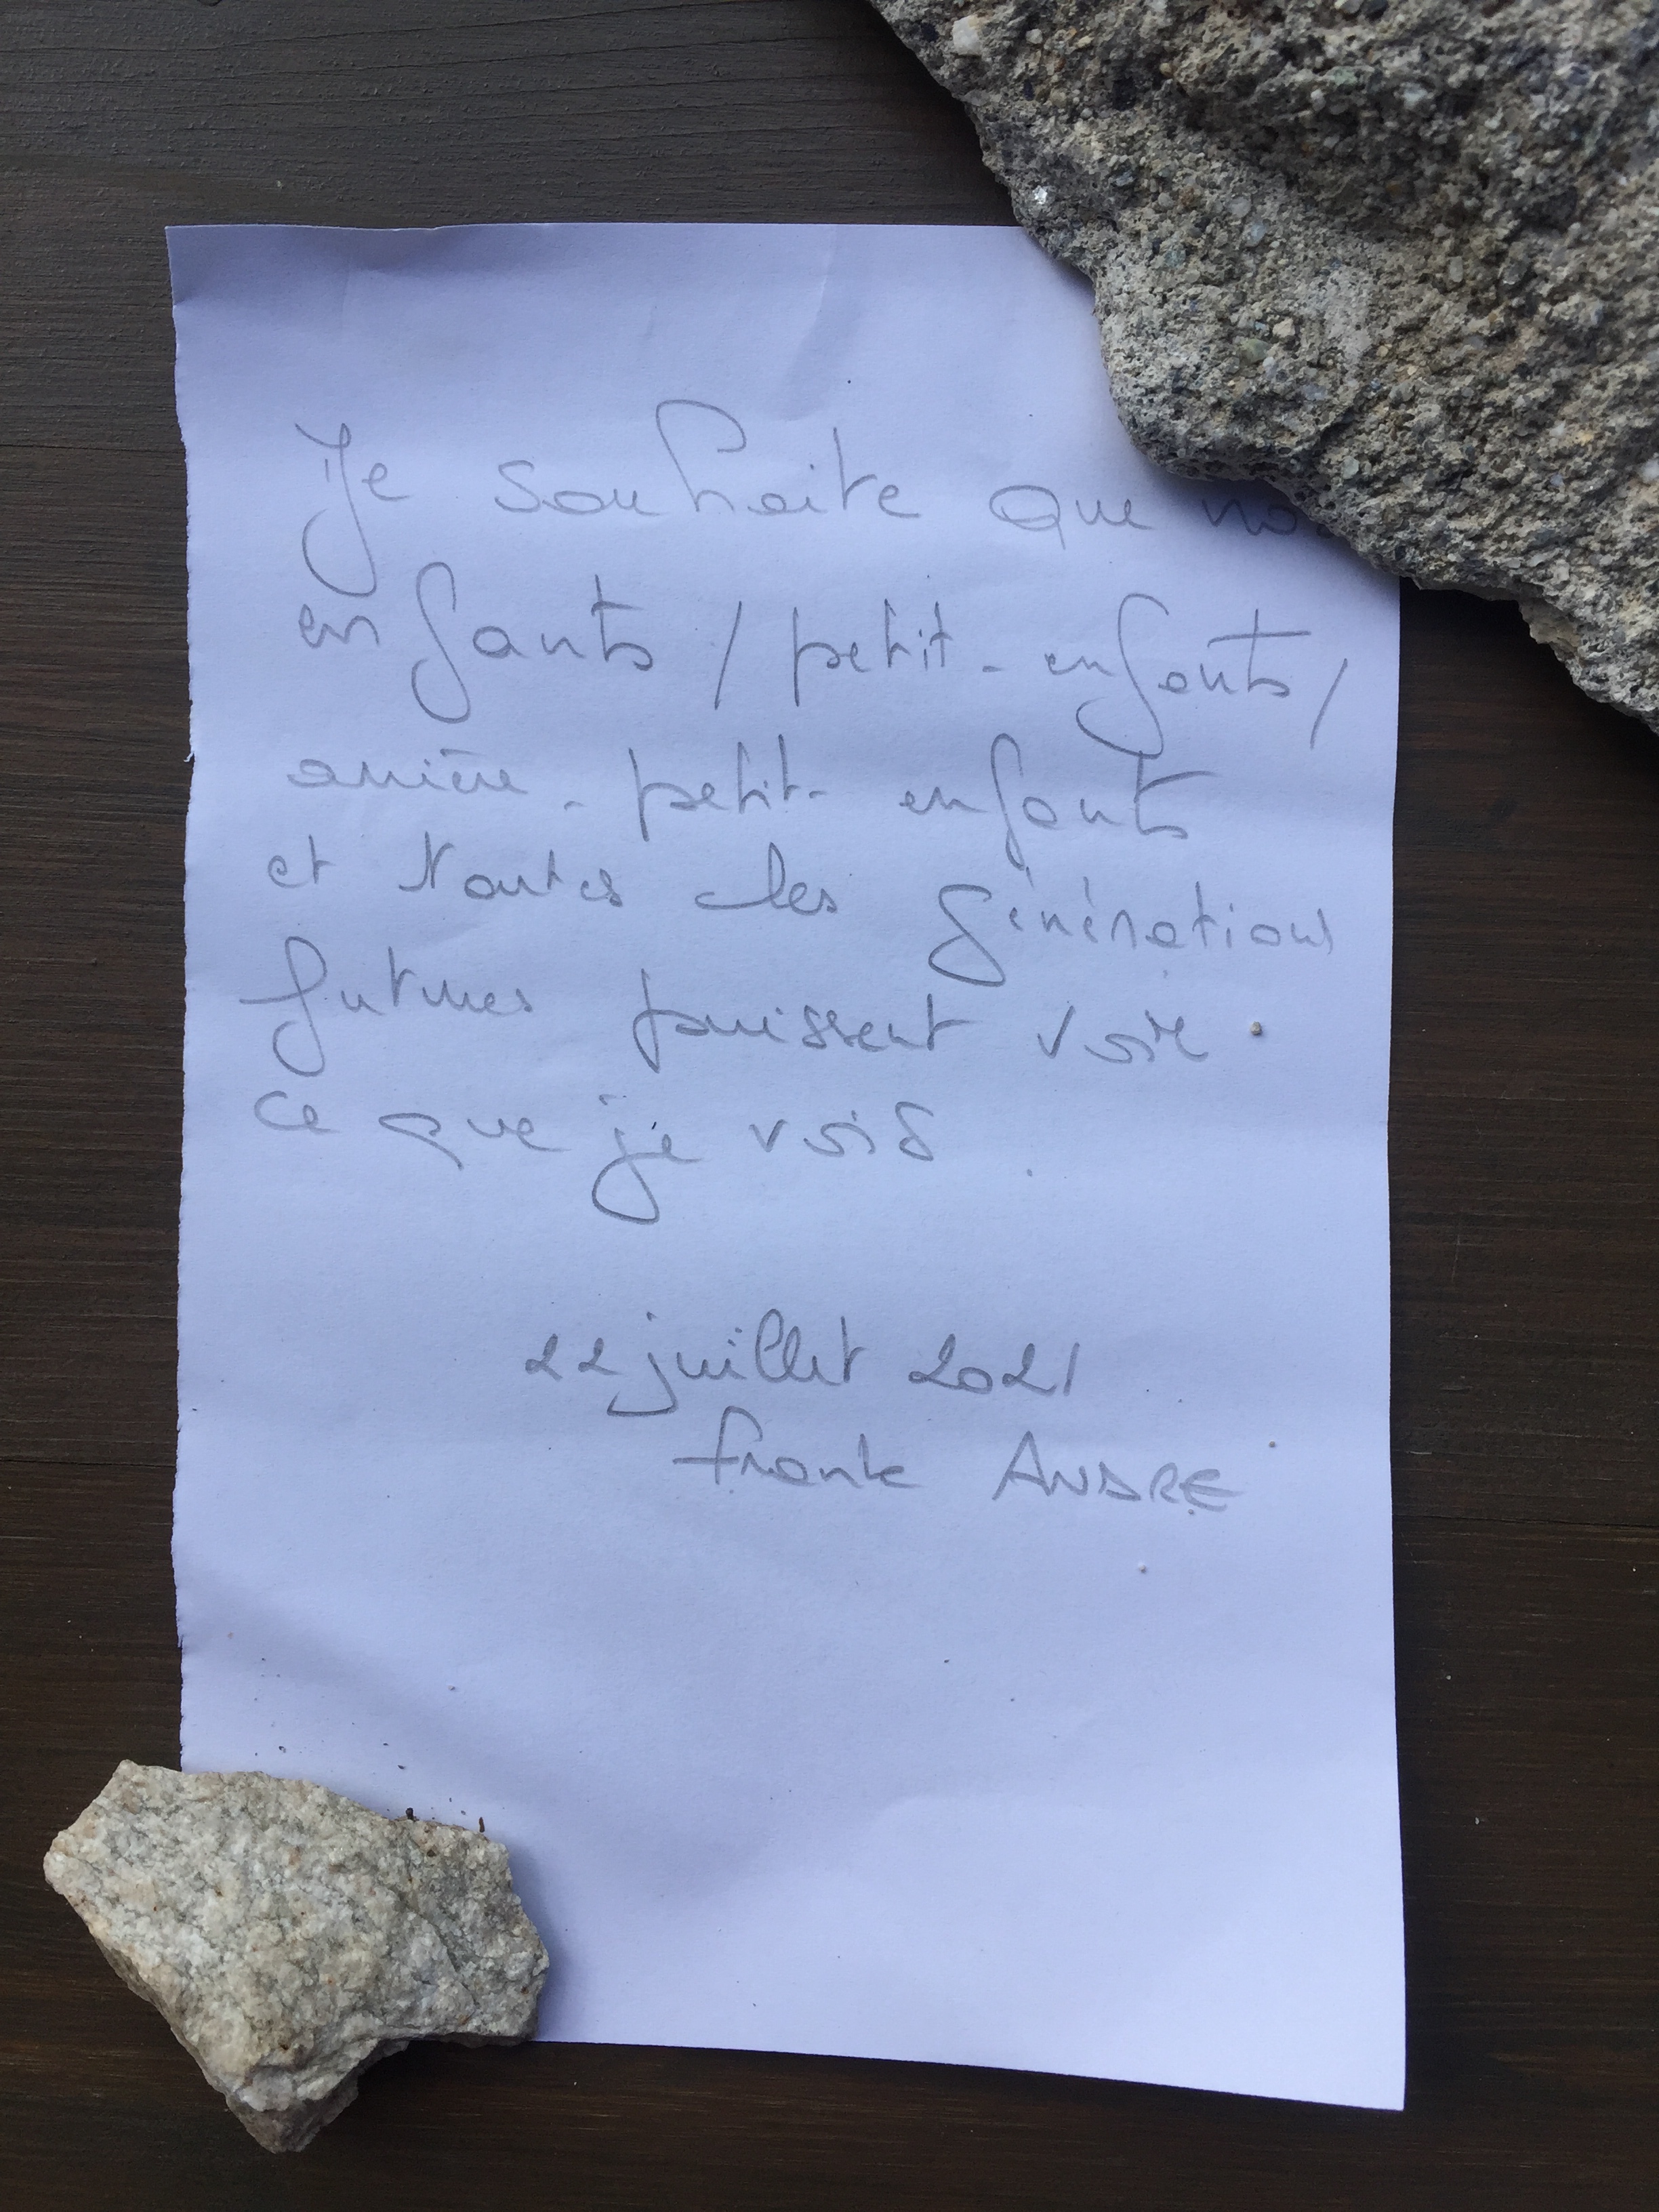 Je souhaite que nos
enfants / petit-enfants /
arrière-petit-enfants
et toutes les générations
futures puissent voir
ce que je vois.
22 juillet 2021
Frank ANDRE